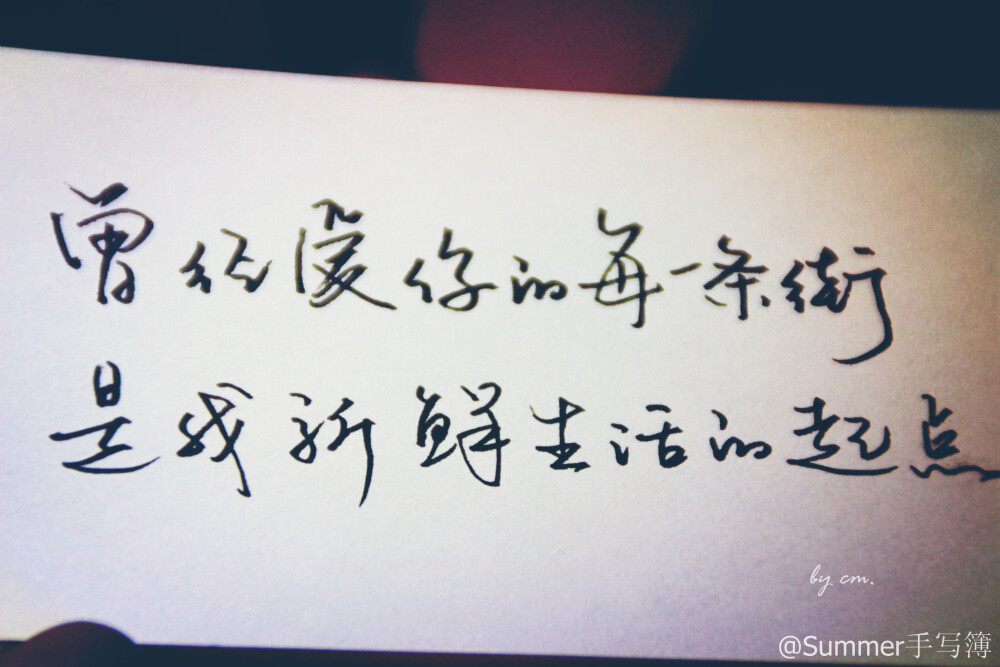 曾经爱你的每一条街
是我新鲜生活的起点
by. cm.
@Summer手写簿